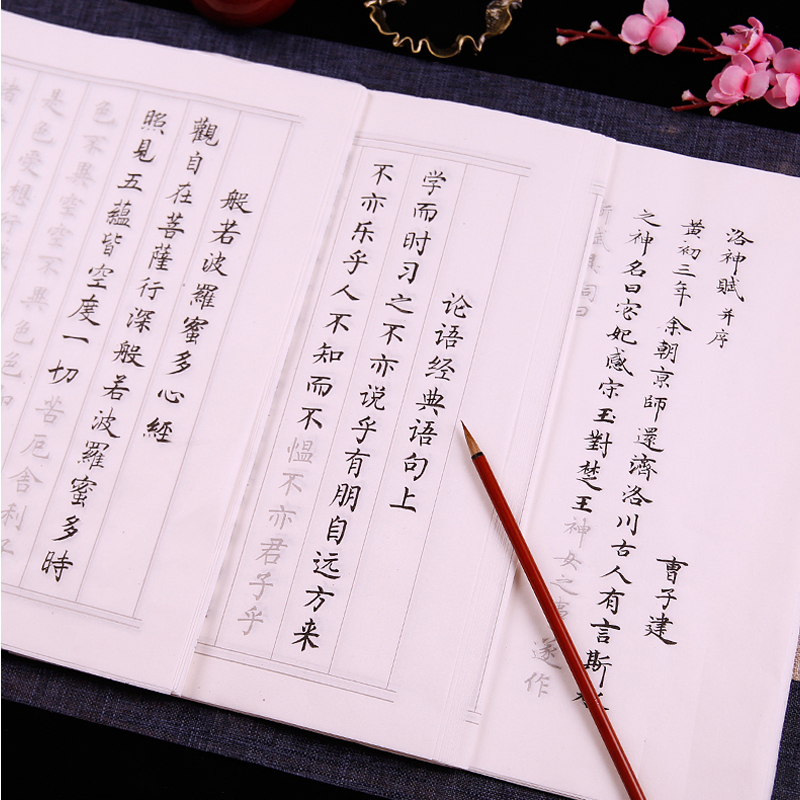 洛神賦并序
曹子建
黄初三年余朝京師還濟洛川古人有言斯
之神名曰宓妃感宋玉對楚王神女之事遂作
斯賦其詞曰
论语经典语句上
学而时习之不亦说乎有朋自远方来
不亦乐乎人不知而不愠不亦君子乎
般若波羅蜜多心經
觀自在菩薩行深般若波羅蜜多時
照見五蘊皆空度一切苦厄舍利子
色不異空空不異色色即
是色受想行
諸